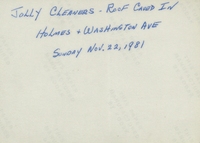 JOLLY CLEANERS - ROOF CAVED IN
HOLMES & WASHINGTON AVE
SUNDAY NOV. 22, 1981